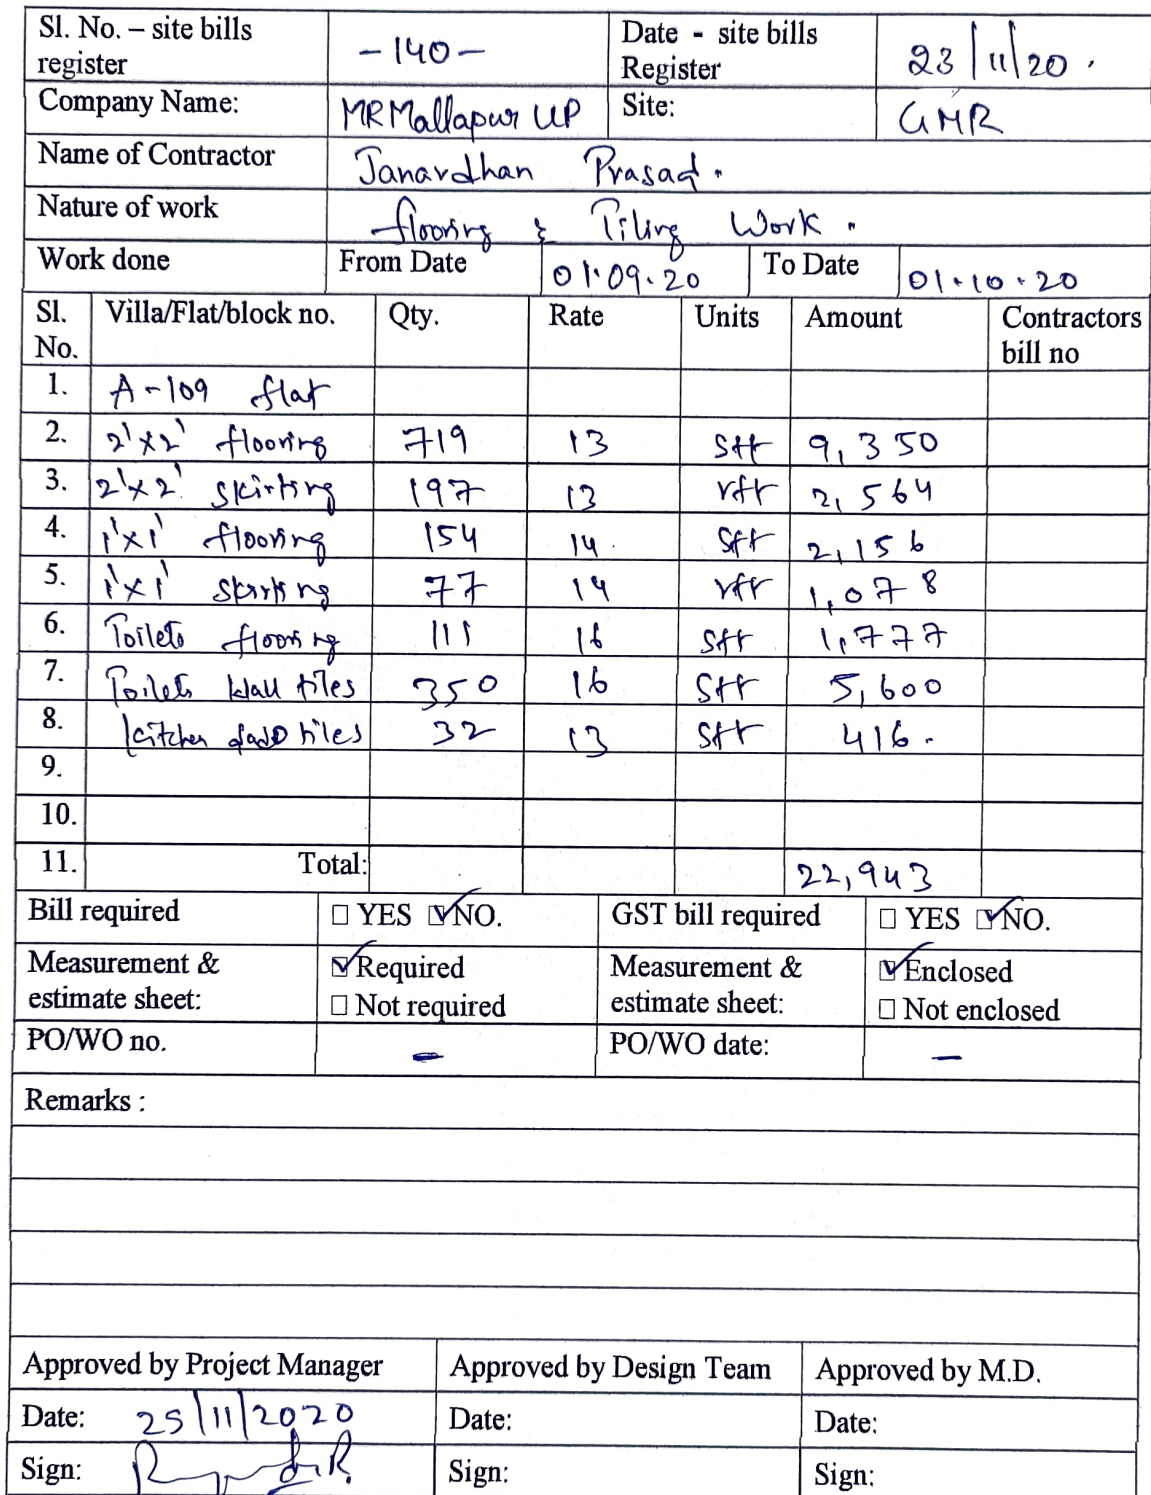 Sl. No. – site bills register -140- Date - site bills Register 23/11/20.
Company Name: MRMallapur LLP Site: GMR
Name of Contractor Janardhan Prasad.
Nature of work flooring & Tiling Work.
Work done From Date 01.09.20 To Date 01.10.20
Sl. No. Villa/Flat/block no. Qty. Rate Units Amount Contractors bill no
1. A-109 flat
2. 2'x2' flooring 719 13 sft 9,350
3. 2'x2' skirting 197 13 rft 2,564
4. 1'x1' flooring 154 14 sft 2,156
5. 1'x1' skirting 77 14 rft 1,078
6. Toilets flooring 111 16 sft 1,777
7. Toilets wall tiles 350 16 sft 5,600
8. kitchen dado tiles 32 13 sft 416.
9.
10.
11. Total: 22,943
Bill required ☐ YES ☑ NO. GST bill required ☐ YES ☑ NO.
Measurement & estimate sheet: ☑ Required ☐ Not required Measurement & estimate sheet: ☑ Enclosed ☐ Not enclosed
PO/WO no. - PO/WO date: -
Remarks :
Approved by Project Manager Approved by Design Team Approved by M.D.
Date: 25/11/2020 Date: Date:
Sign: Sign: Sign: